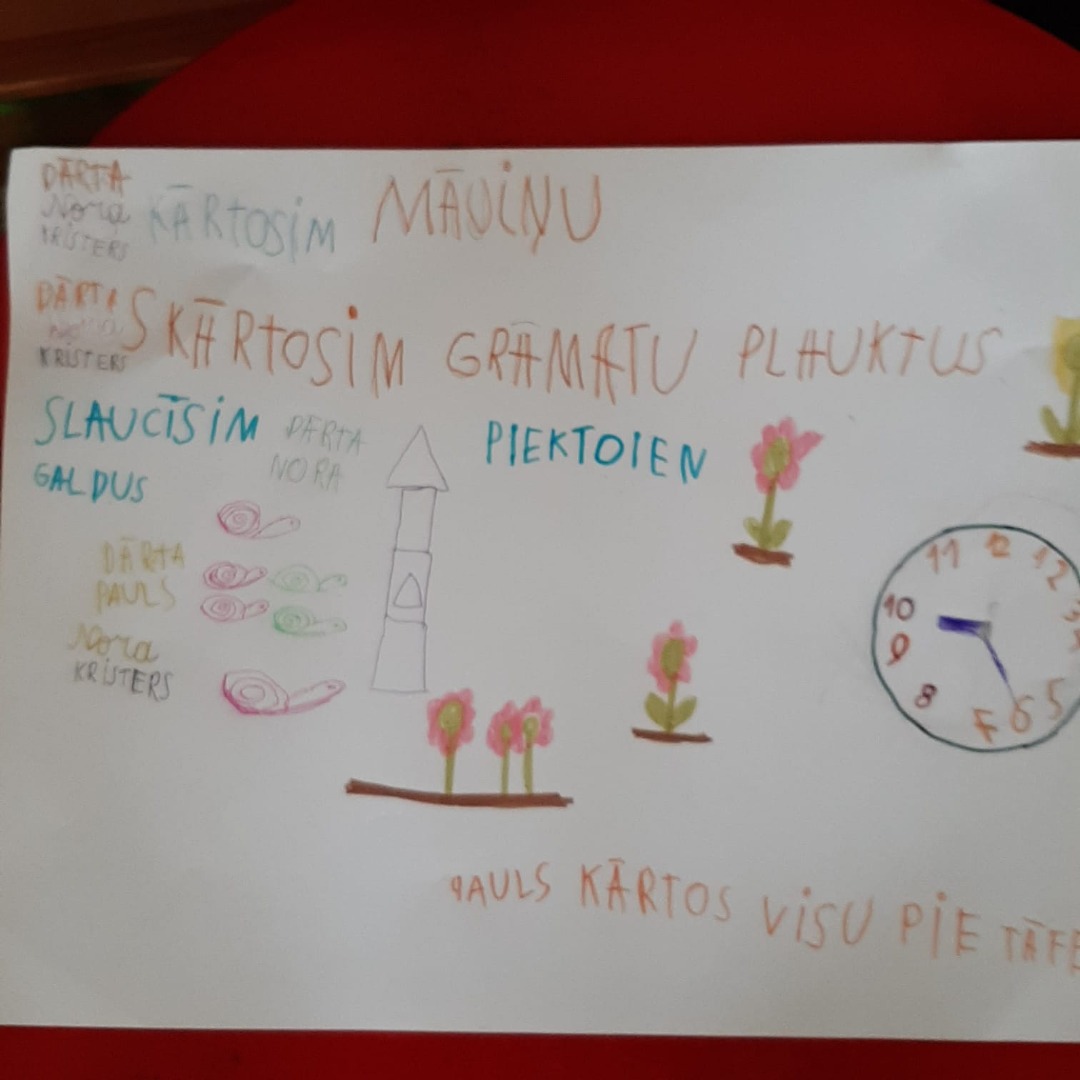 DĀRTA
Nora
KRISTERS
KĀRTOSIM MĀJIŅU
DĀRTA
Nora
KRISTERS
SKĀRTOSIM GRĀMATU PLAUKTUS
SLAUCĪSIM
GALDUS
DĀRTA
NORA
PIEKTDIEN
DĀRTA
PAULS
Nora
KRISTERS
11 12 1 2
10
9
8 7 6 5
PAULS KĀRTOS VISU PIE TĀFE